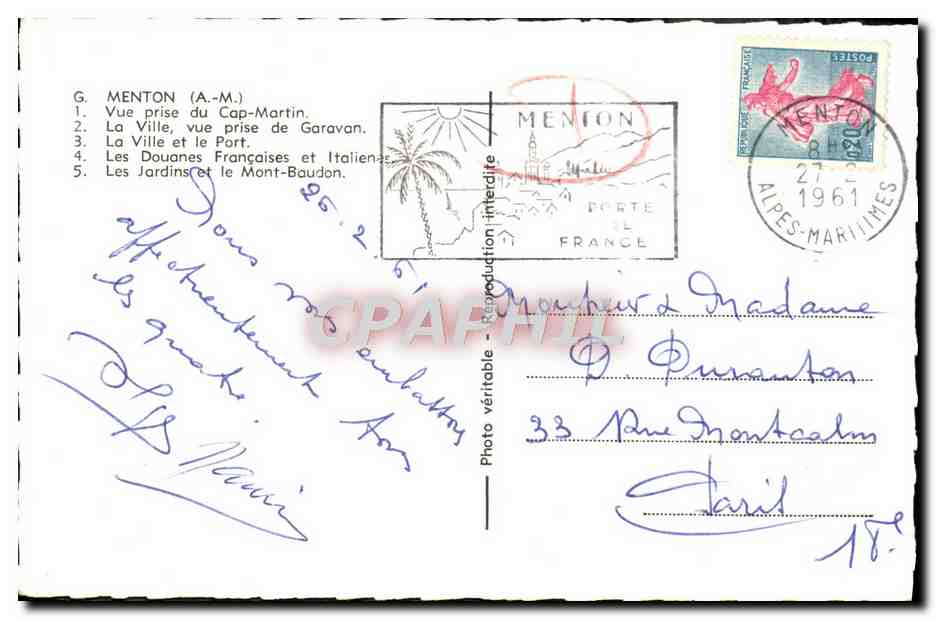 G. MENTON (A.-M.)
1. Vue prise du Cap-Martin.
2. La Ville, vue prise de Garavan.
3. La Ville et le Port.
4. Les Douanes Françaises et Italiennes
5. Les Jardins et le Mont-Baudon.
MENTON
PORTE
DE
FRANCE
REPUBLIQUE FRANÇAISE
POSTES
0,20
MENTON
8H
27-2
1961
ALPES-MARITIMES
Photo véritable - Reproduction interdite
CPAPHIL
26.2.61
Nous vous embrassons
affectueusement tous
les quatre.
Monsieur & Madame
D. Duranton
33 Rue Montcalm
Paris
18e